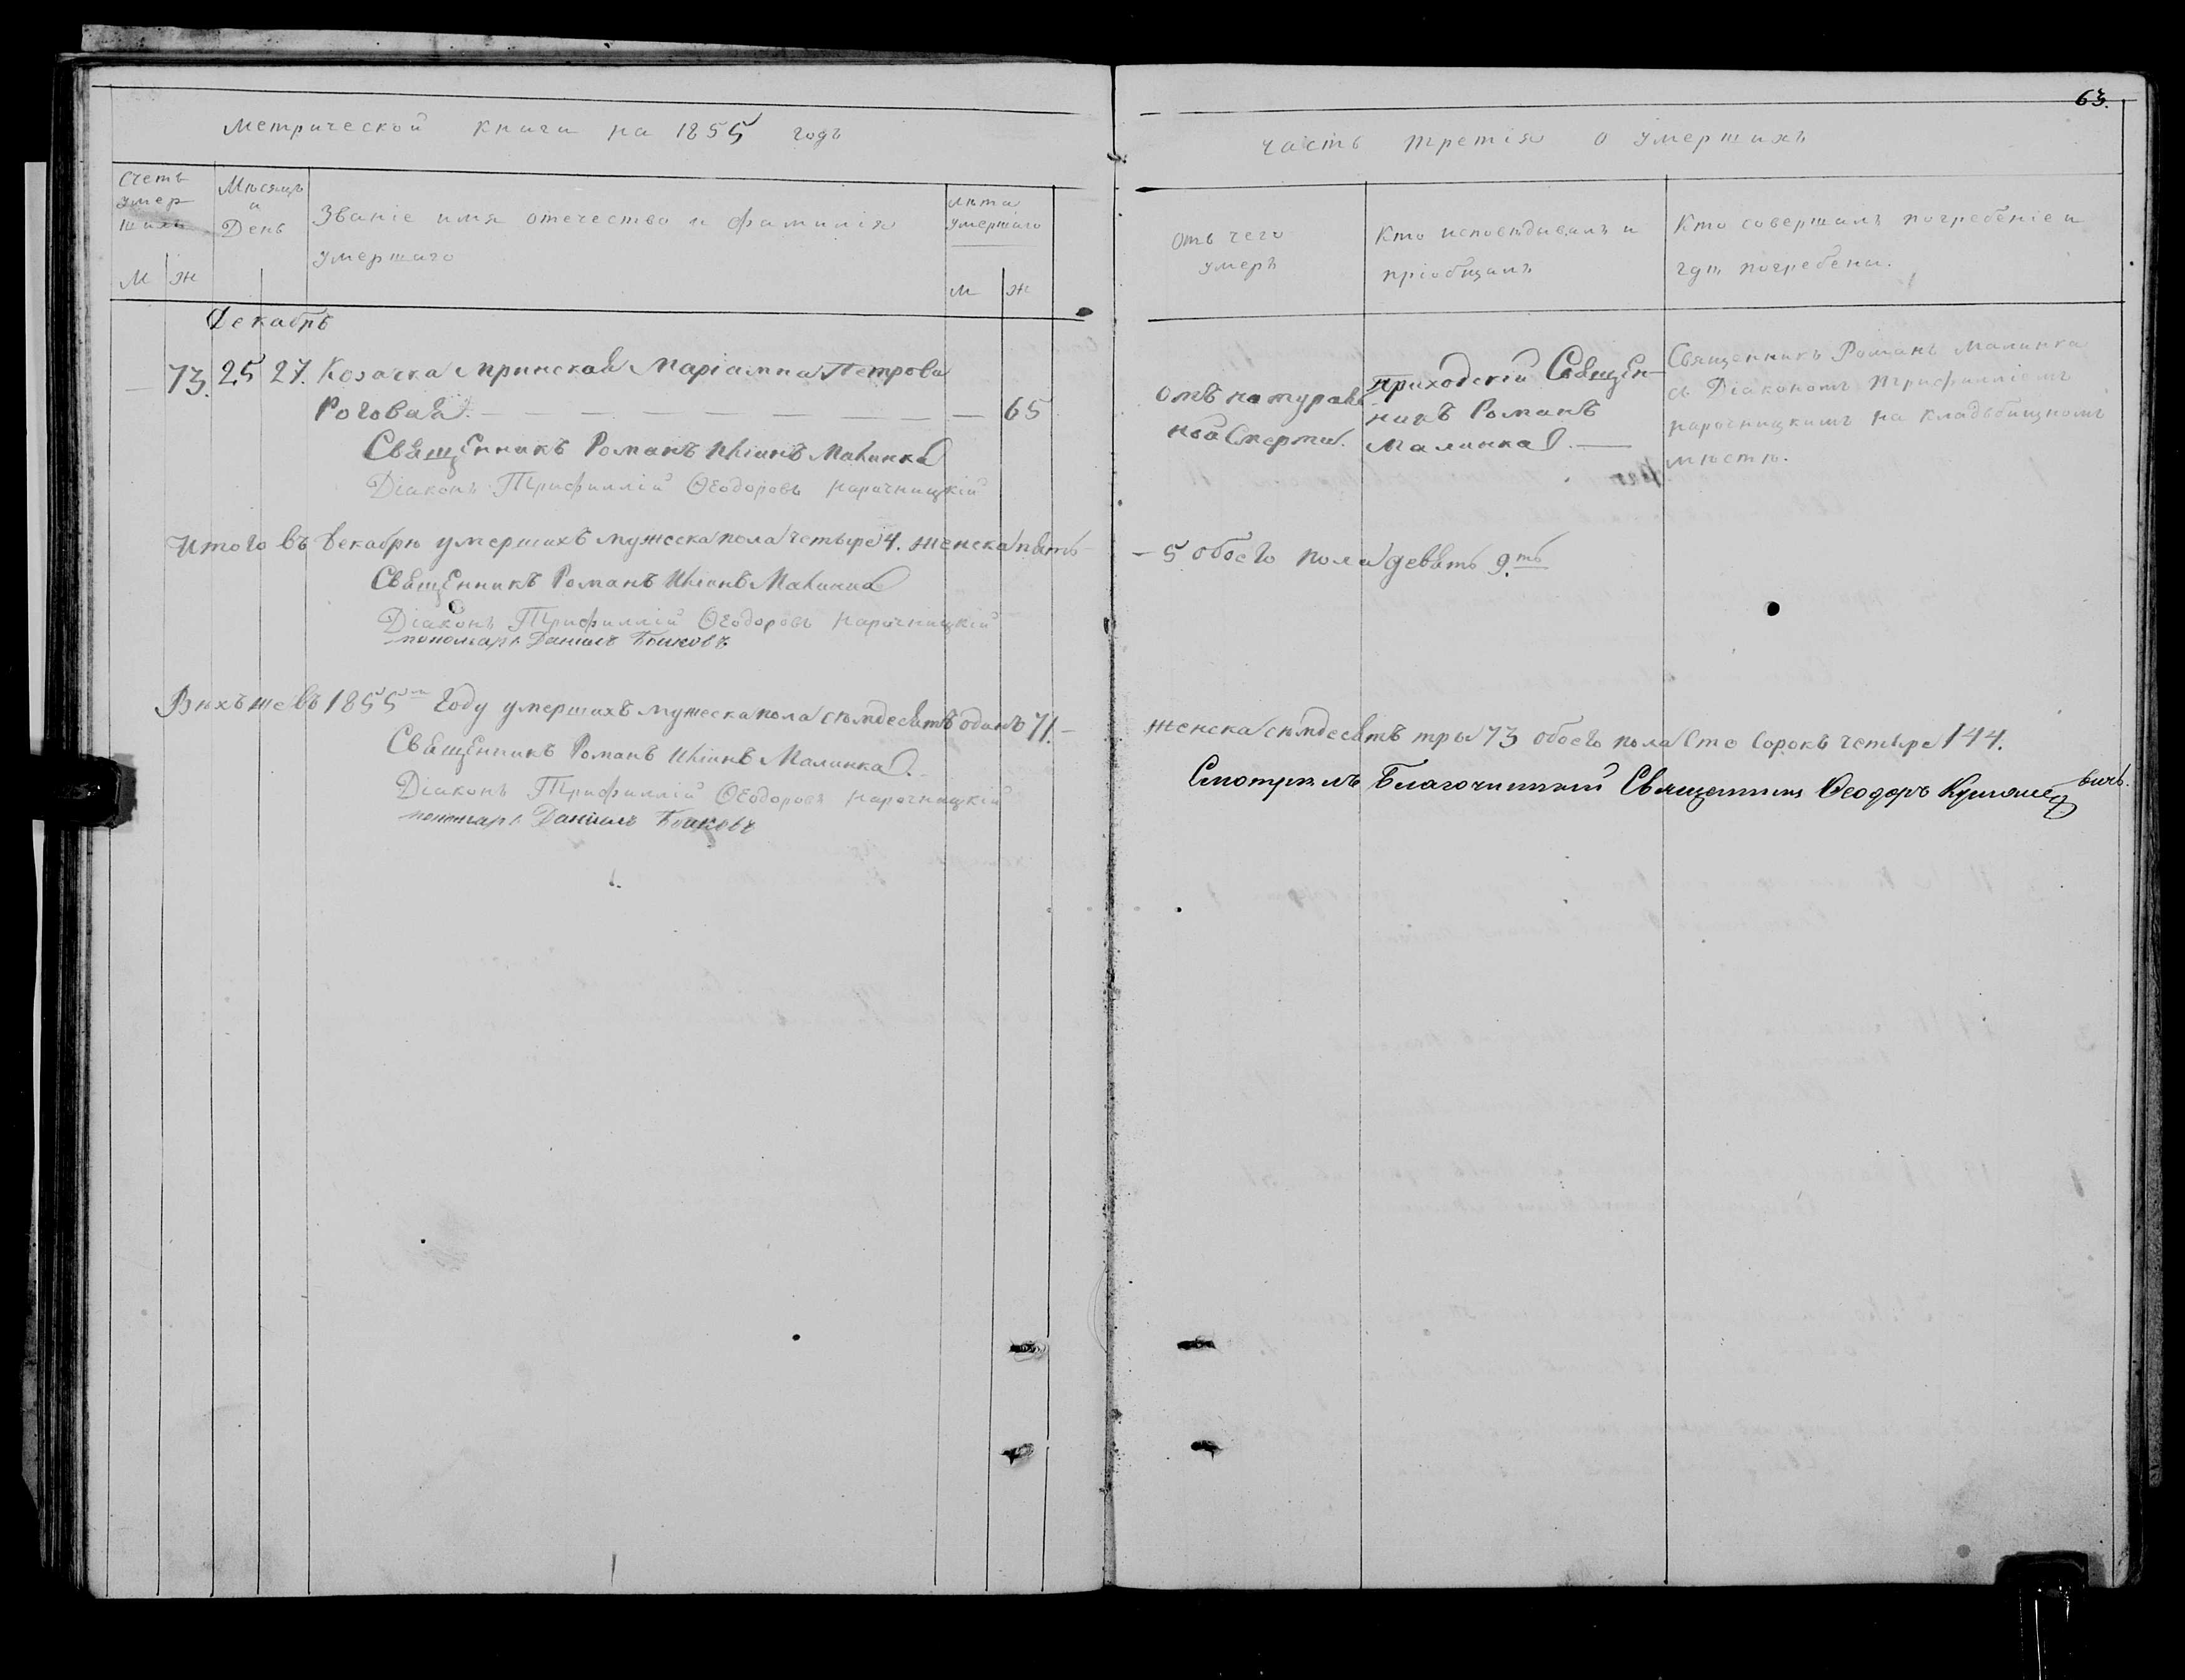 63.
Метрической книги на 1855 годъ
часть третія о умершихъ
Счетъ умершихъ
Мѣсяцъ и День
Званіе имя отечество и фамилія
умершаго
лѣта умершаго
м ж
м ж
отъ чего
умеръ
Кто исповѣдывалъ и
пріобщалъ
Кто совершалъ погребеніе и
гдѣ погребены.
Декабрь
— 73. 25 27. Козачка Мринская Маріамна Петрова
Роговая. — 65
отъ натураль
ной Смерти.
Приходскій Священ-
никъ Романъ
Малинка. —
Священникъ Романъ Малинка
съ Діакономъ Трифилліемъ
нарочницкимъ на кладьбищномъ
мѣстѣ.
Священникъ Романъ Малинка
Діаконъ Трифиллій Ѳеодоровъ нарочницкій
Итого въ Декабрѣ умершихъ мужеска пола четыре 4. женска пять — 5 обоего пола девять 9.ть
Священникъ Романъ Малинка
Діаконъ Трифиллій Ѳеодоровъ нарочницкій
пономарь Даніилъ
Всѣхъ же въ 1855м Году умершихъ мужеска пола семдесятъ одинъ 71. — женска семдесятъ три 73 обоего пола Сто Сорокъ четыре 144.
Священникъ Романъ Малинка.
Діаконъ Трифиллій Ѳеодоровъ нарочницкій
пономарь Даніилъ
Смотрѣлъ Благочинный Священникъ Ѳеодоръ